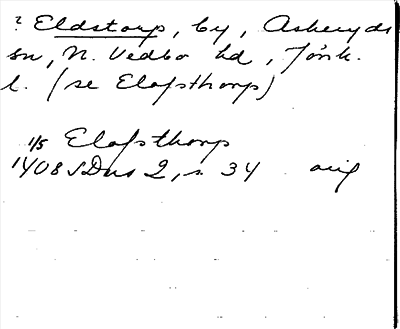 ? Eldstorp, by, Asheryds
sn, N. Vedbo hd, Jönk.
l. (se Elofsthorp)
1/5 Elofsthorp
1408 SDns 2, s. 34 orig